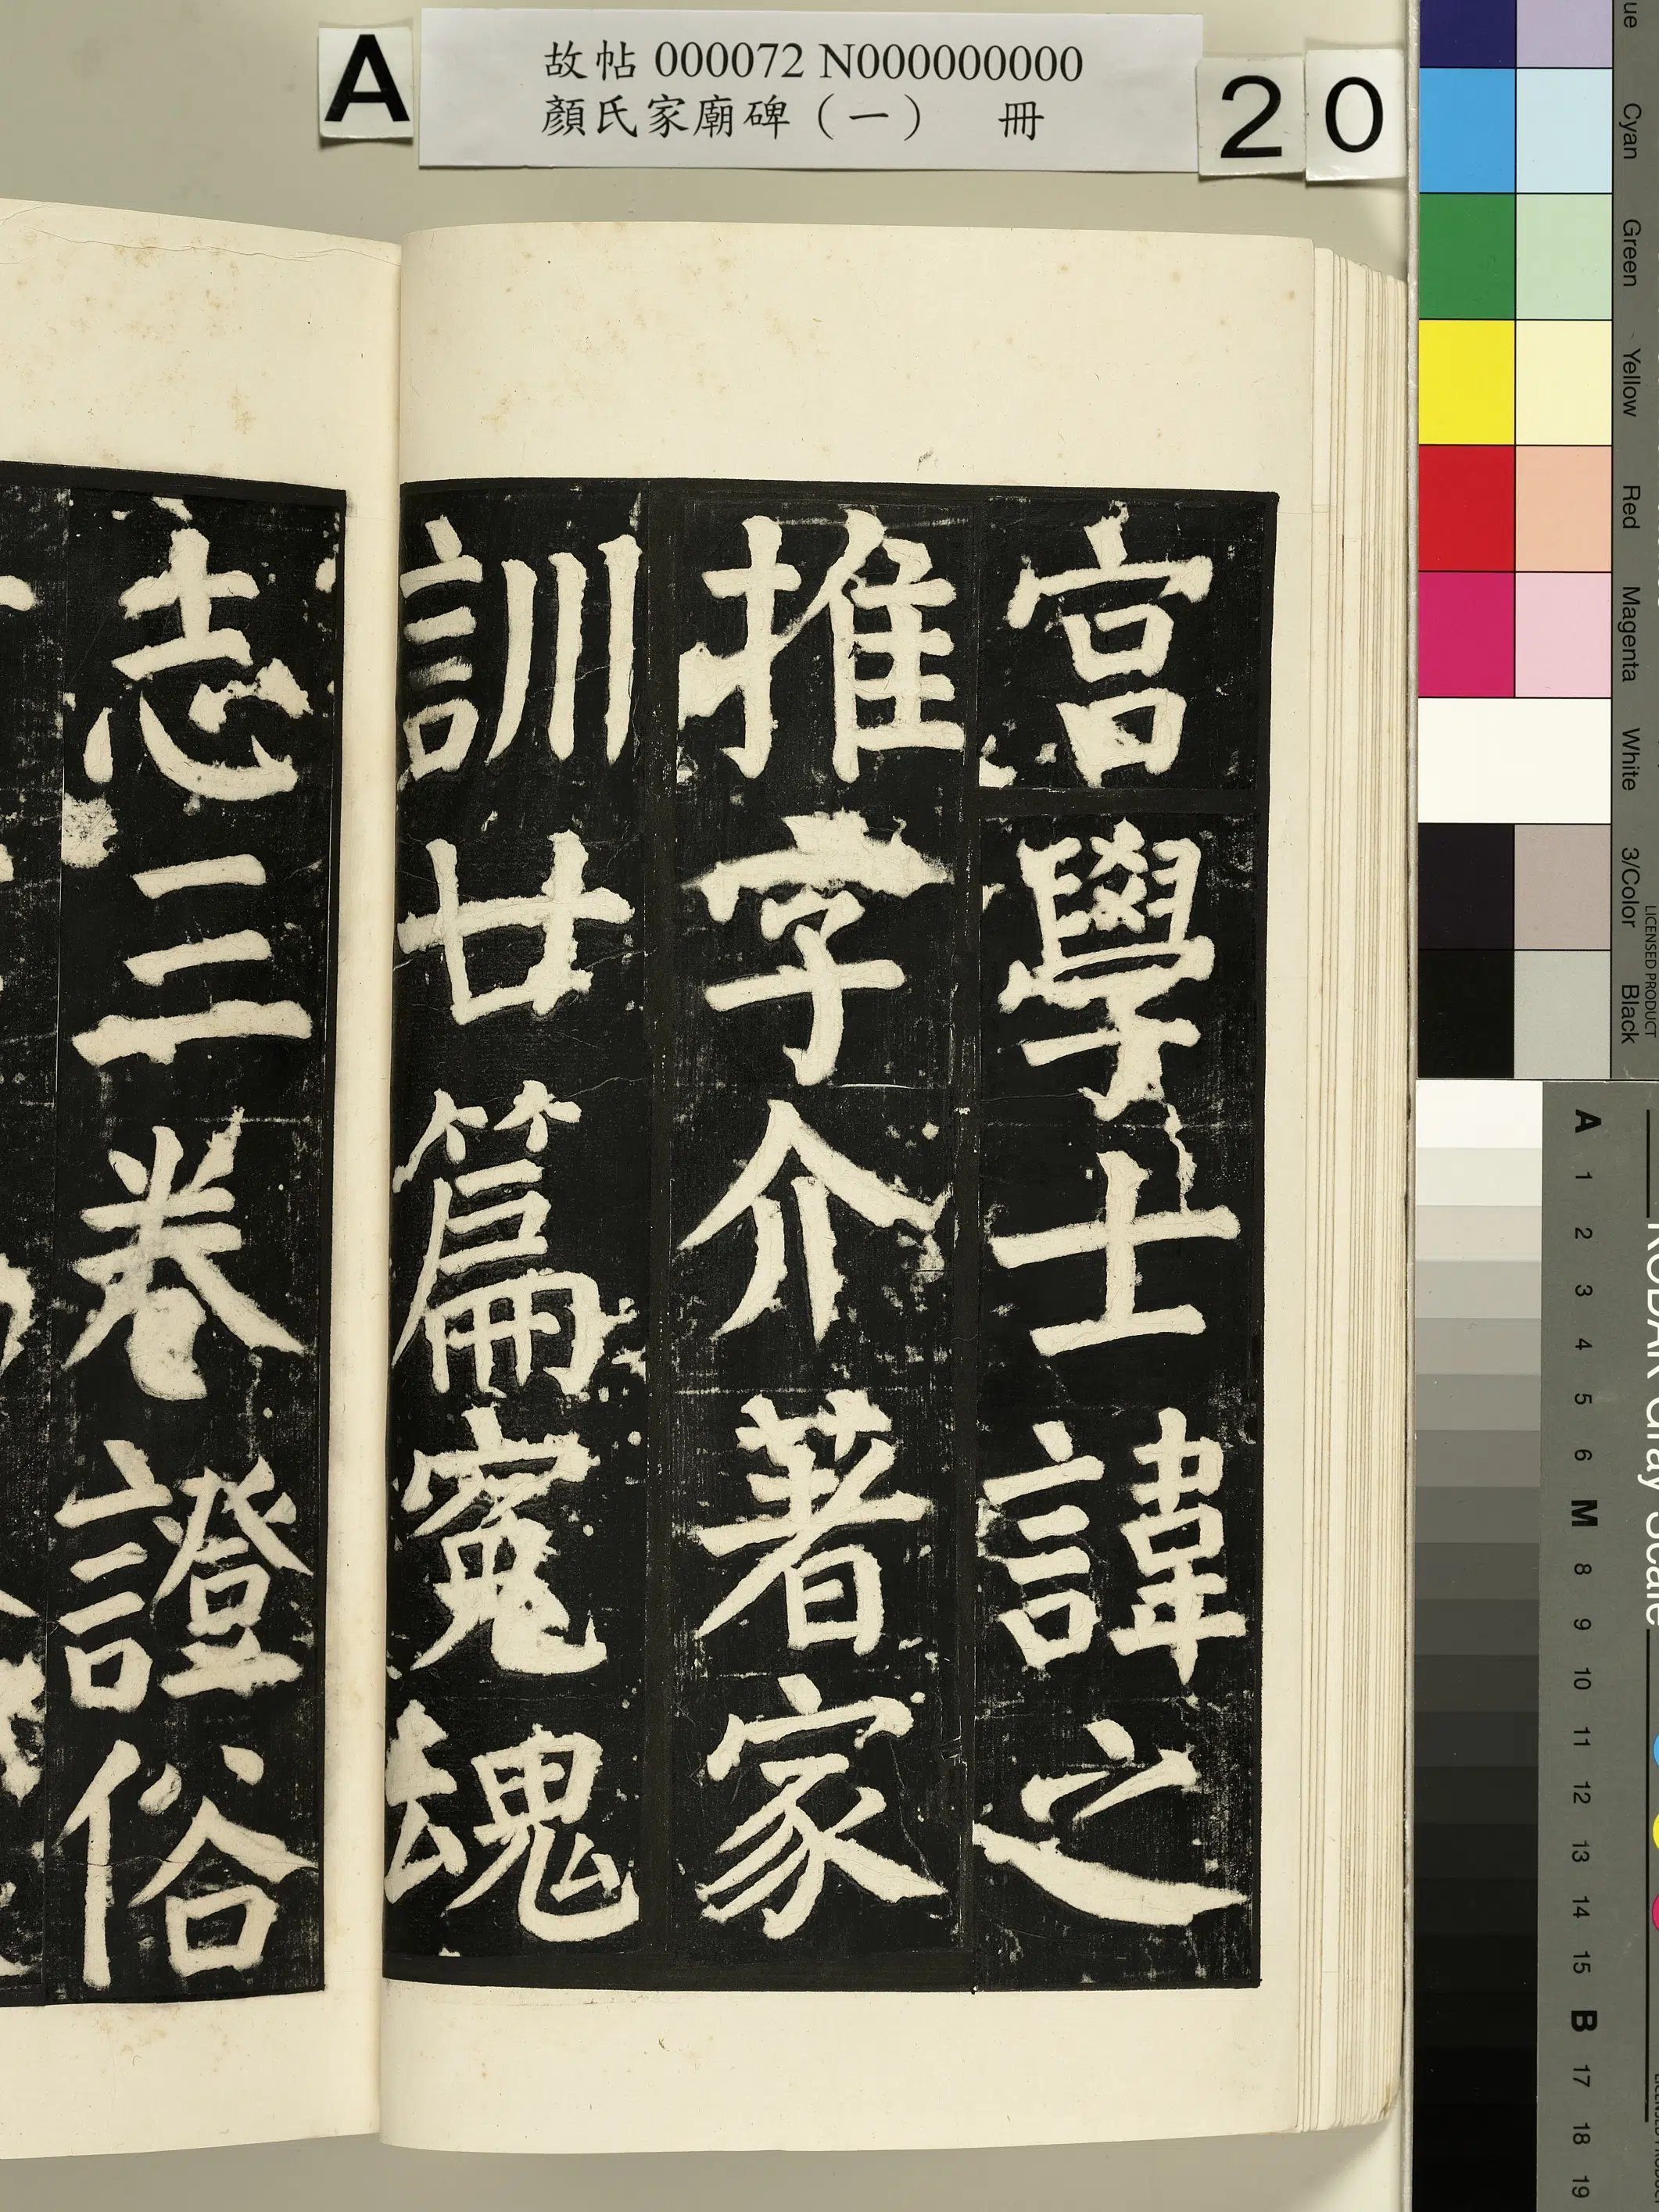 A
故帖 000072 N000000000
顏氏家廟碑（一）　冊
20
宮學士諱之
推字介著家
訓廿篇寃魂
志三卷證俗
Cyan
Green
Yellow
Red
Magenta
White
3/Color
Black
LICENSED PRODUCT
KODAK Gray Scale
A 1 2 3 4 5 6 M 8 9 10 11 12 13 14 15 B 17 18 19